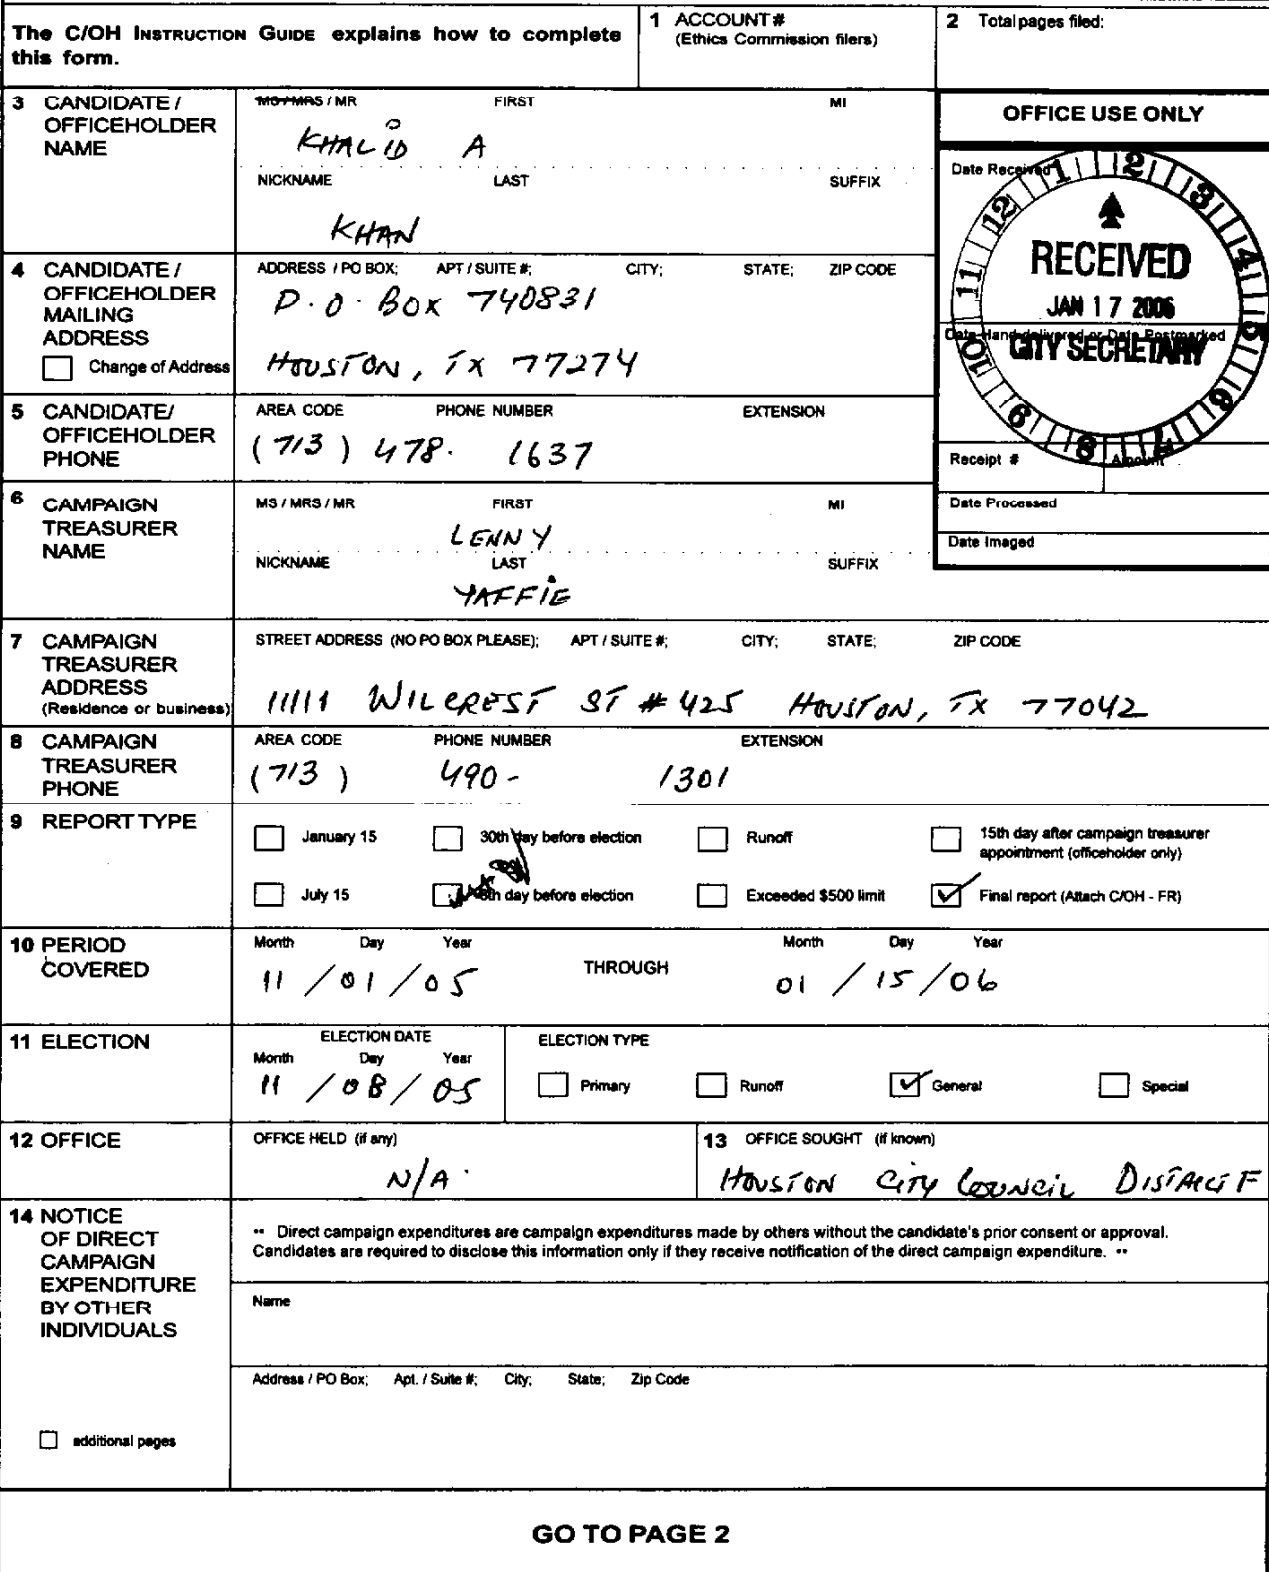 The C/OH INSTRUCTION GUIDE explains how to complete this form.
1 ACCOUNT # (Ethics Commission filers)
2 Total pages filed:
3 CANDIDATE / OFFICEHOLDER NAME
MS / MRS / MR FIRST MI
KHALID A
NICKNAME LAST SUFFIX
KHAN
OFFICE USE ONLY
Date Received
12 1 2 3 4 5 6 7 8 9 10 11
RECEIVED
JAN 17 2006
Date Hand-delivered or Date Postmarked
CITY SECRETARY
Receipt # Amount
Date Processed
Date Imaged
4 CANDIDATE / OFFICEHOLDER MAILING ADDRESS
Change of Address
ADDRESS / PO BOX; APT / SUITE #; CITY; STATE; ZIP CODE
P.O. BOX 740831
HOUSTON, TX 77274
5 CANDIDATE/ OFFICEHOLDER PHONE
AREA CODE PHONE NUMBER EXTENSION
(713) 478. 1637
6 CAMPAIGN TREASURER NAME
MS / MRS / MR FIRST MI
LENNY
NICKNAME LAST SUFFIX
YAFFIE
7 CAMPAIGN TREASURER ADDRESS (Residence or business)
STREET ADDRESS (NO PO BOX PLEASE); APT / SUITE #; CITY; STATE; ZIP CODE
11111 WILCREST ST # 425 HOUSTON, TX 77042
8 CAMPAIGN TREASURER PHONE
AREA CODE PHONE NUMBER EXTENSION
(713) 490- 1301
9 REPORT TYPE
January 15 30th day before election Runoff 15th day after campaign treasurer appointment (officeholder only)
July 15 8th day before election Exceeded $500 limit Final report (Attach C/OH - FR)
10 PERIOD COVERED
Month Day Year Month Day Year
11 / 01 / 05 THROUGH 01 / 15 / 06
11 ELECTION
ELECTION DATE
Month Day Year
11 / 08 / 05
ELECTION TYPE
Primary Runoff General Special
12 OFFICE
OFFICE HELD (if any)
N/A
13 OFFICE SOUGHT (if known)
HOUSTON CITY COUNCIL DISTRICT F
14 NOTICE OF DIRECT CAMPAIGN EXPENDITURE BY OTHER INDIVIDUALS
•• Direct campaign expenditures are campaign expenditures made by others without the candidate's prior consent or approval.
Candidates are required to disclose this information only if they receive notification of the direct campaign expenditure. ••
Name
Address / PO Box; Apt. / Suite #; City; State; Zip Code
additional pages
GO TO PAGE 2